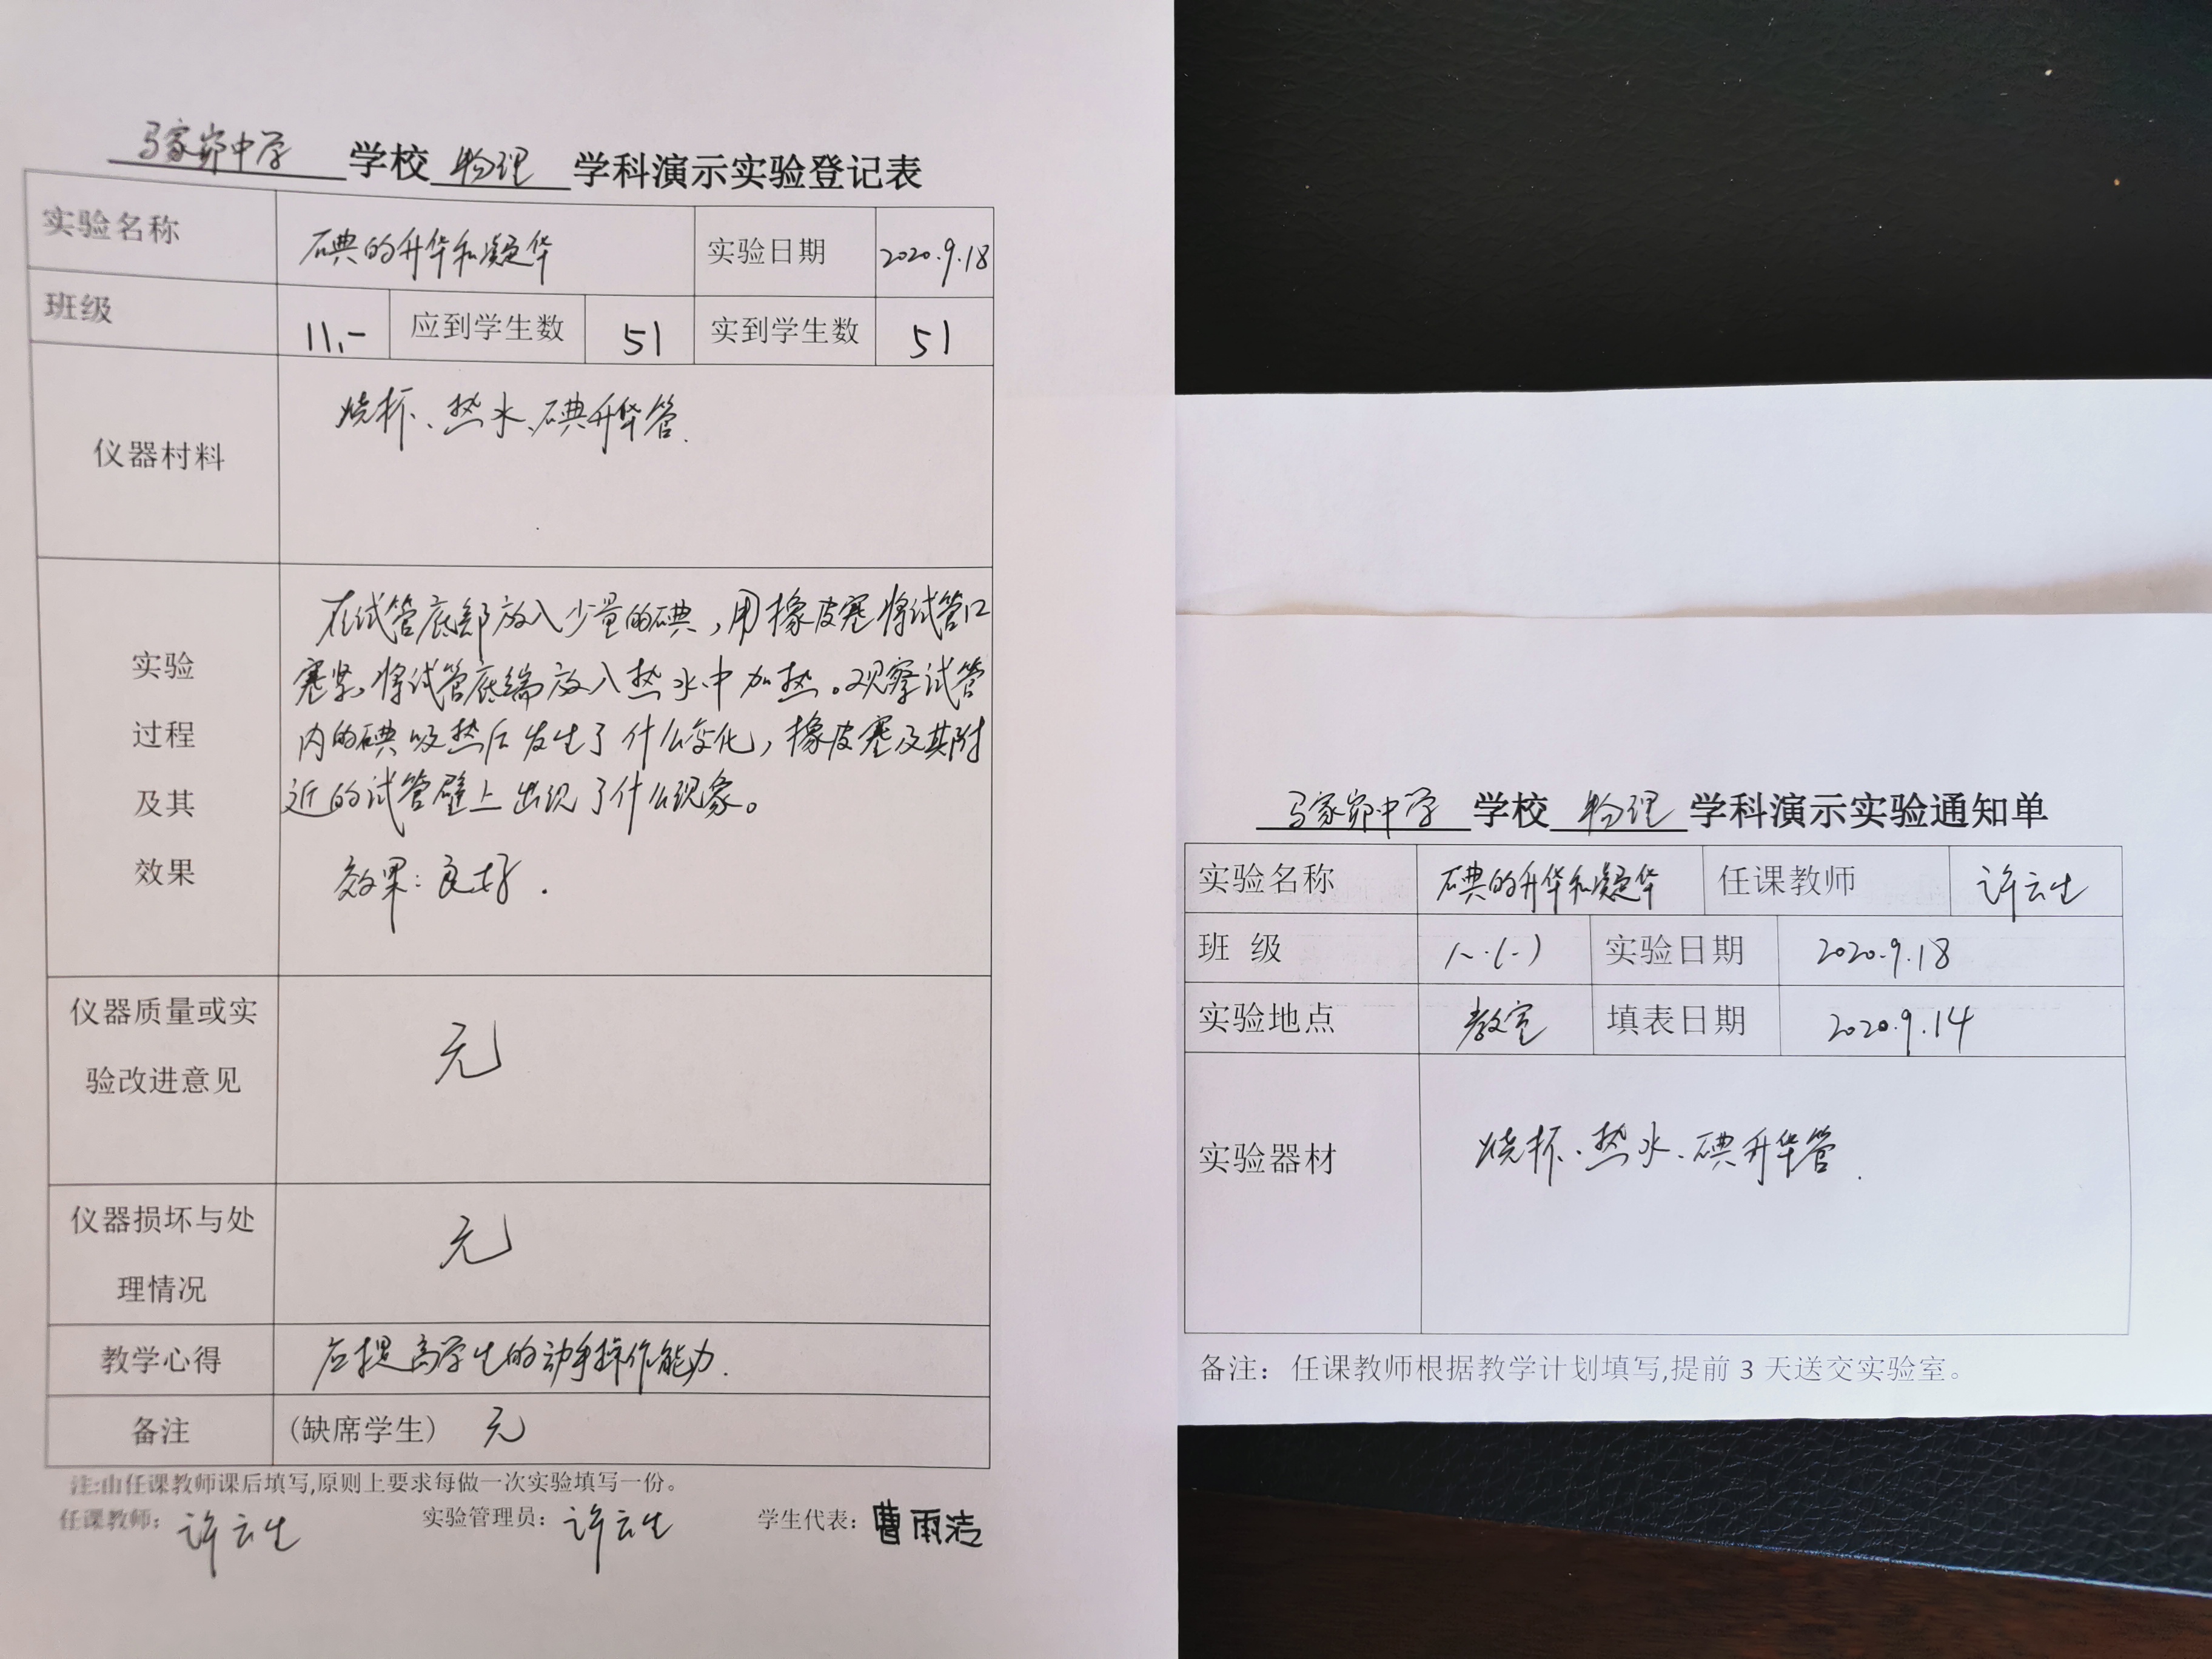 马家峁中学 学校 物理 学科演示实验登记表
实验名称 碘的升华和凝华 实验日期 2020.9.18
班级 八.一 应到学生数 51 实到学生数 51
仪器村料 烧杯、热水、碘升华管.
实验
过程
及其
效果
在试管底部放入少量的碘，用橡皮塞将试管口
塞紧，将试管底端放入热水中加热。观察试管
内的碘吸热后发生了什么变化，橡皮塞及其附
近的试管壁上出现了什么现象。
效果：良好.
仪器质量或实
验改进意见
无
仪器损坏与处
理情况
无
教学心得 应提高学生的动手操作能力.
备注 (缺席学生) 无
注:由任课教师课后填写,原则上要求每做一次实验填写一份。
任课教师: 许云生 实验管理员: 许云生 学生代表: 曹雨洁
马家峁中学 学校 物理 学科演示实验通知单
实验名称 碘的升华和凝华 任课教师 许云生
班 级 八.(一) 实验日期 2020.9.18
实验地点 教室 填表日期 2020.9.14
实验器材 烧杯、热水、碘升华管.
备注: 任课教师根据教学计划填写,提前 3 天送交实验室。